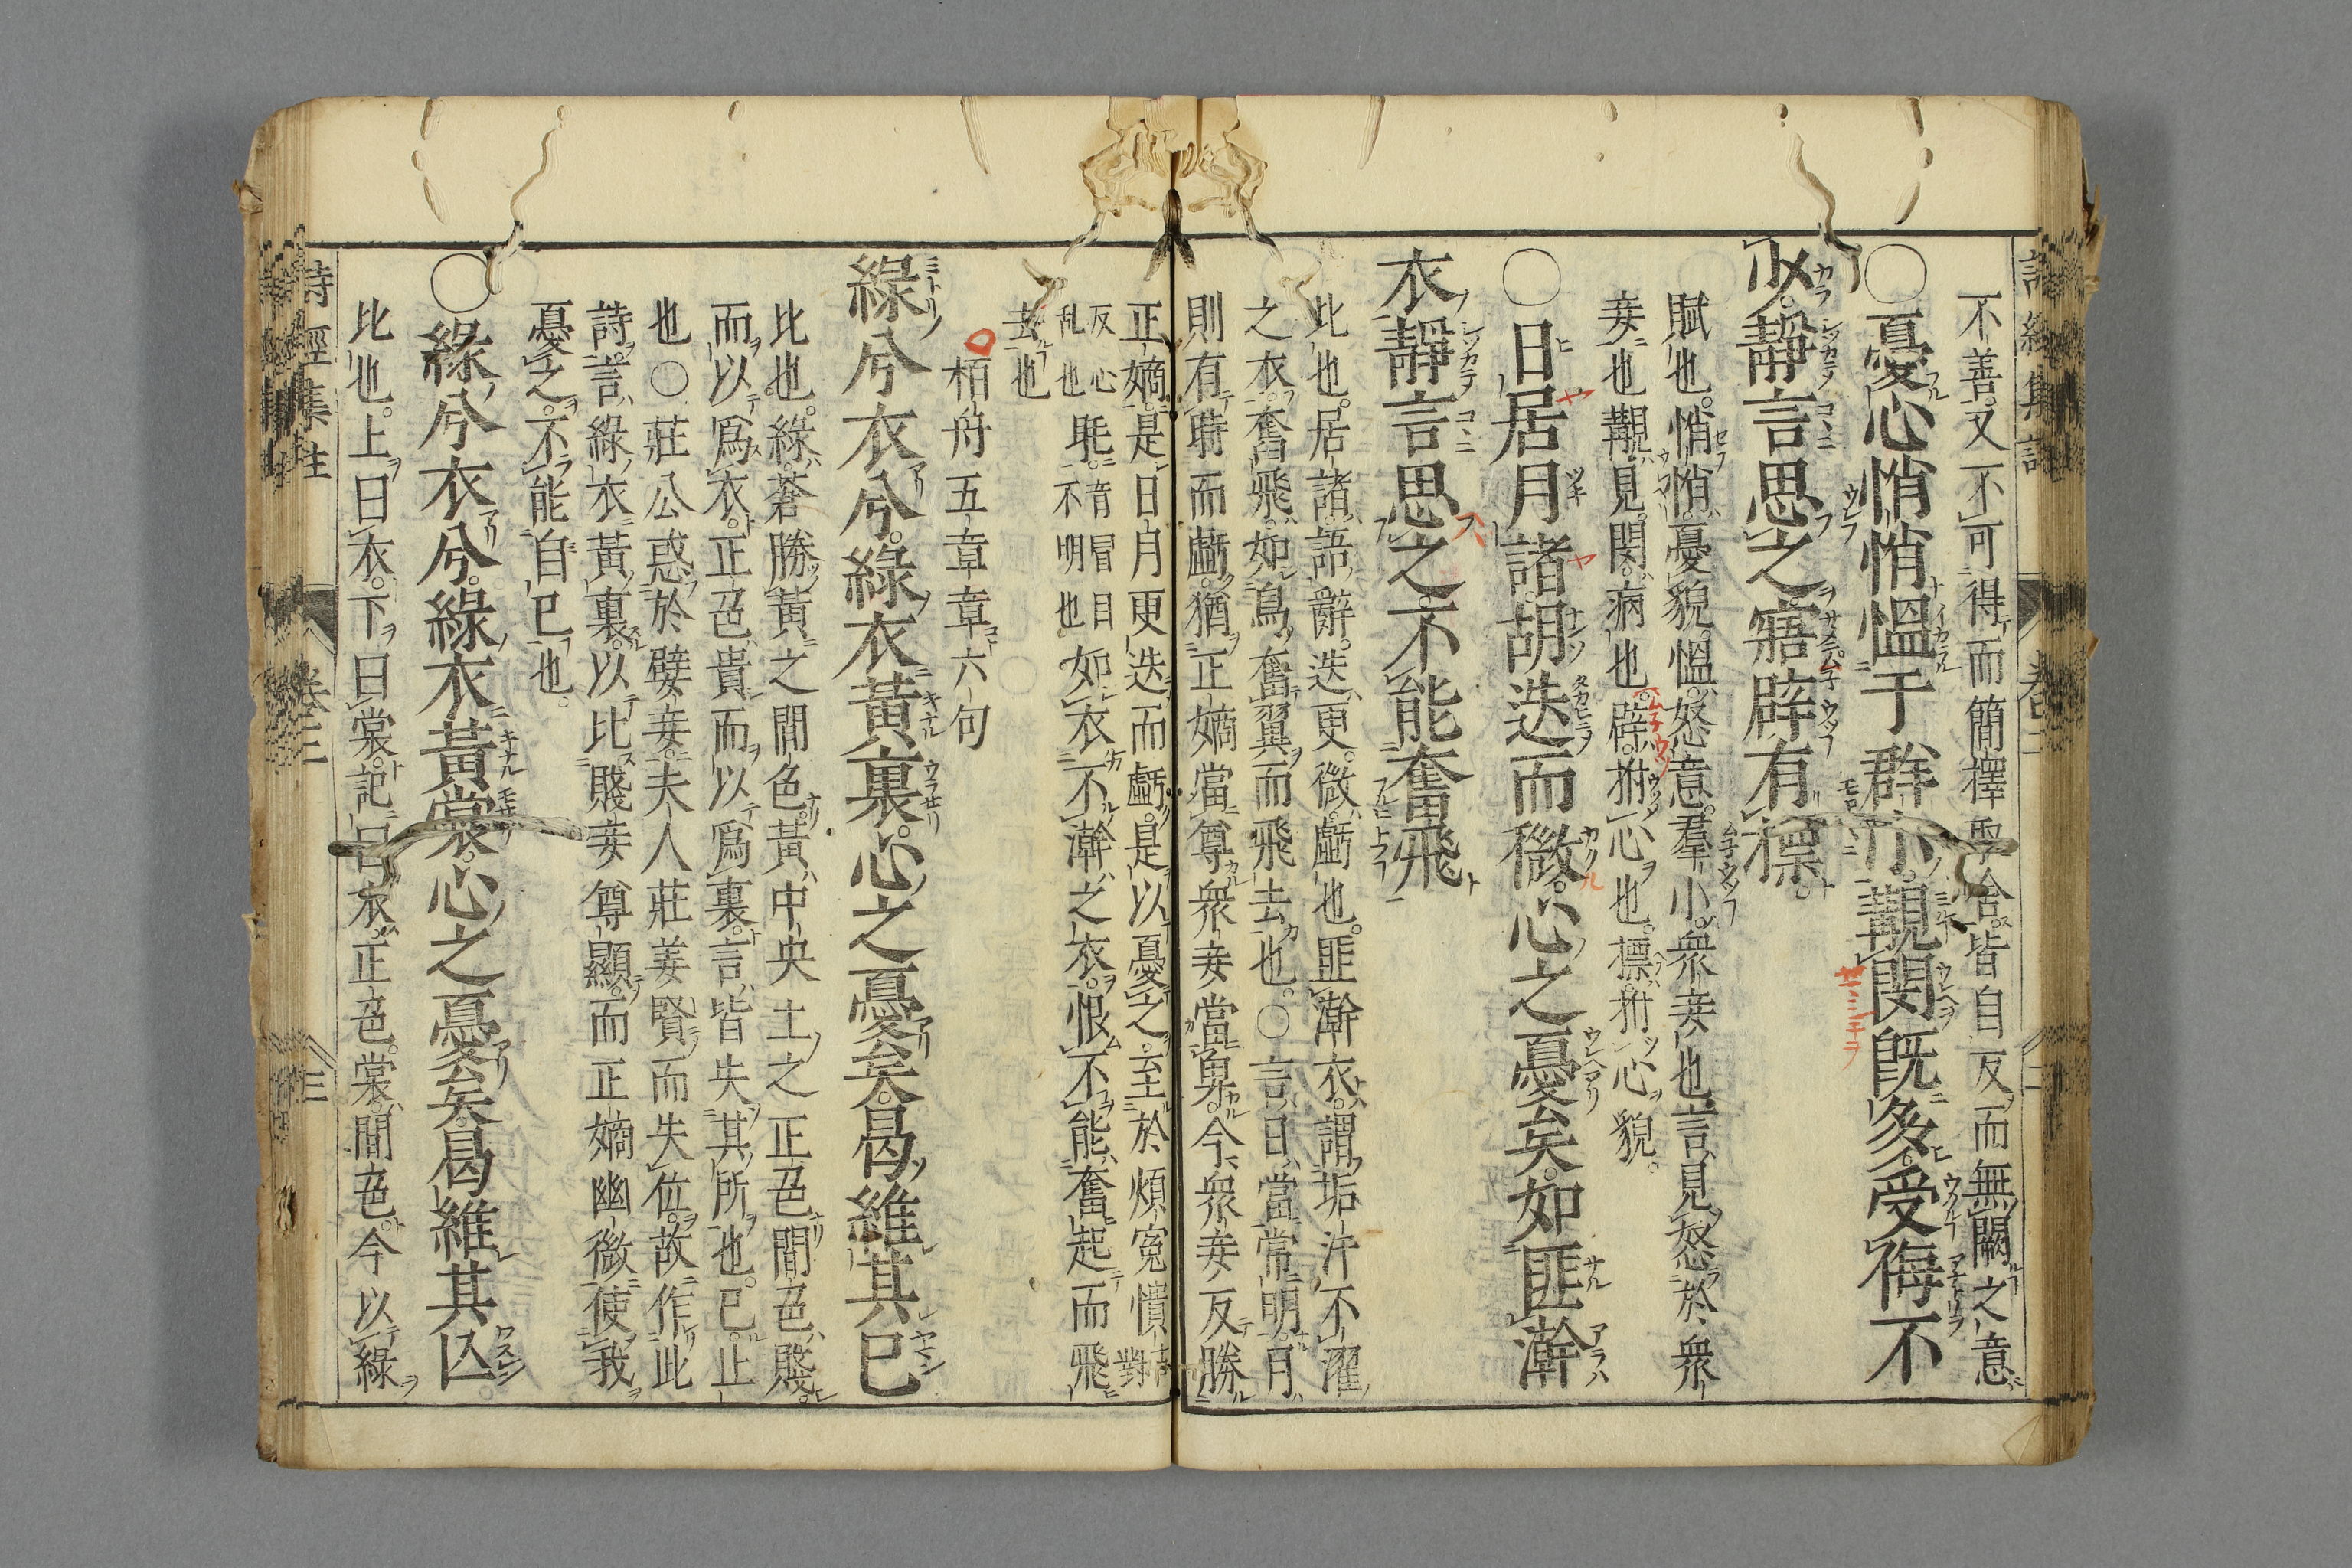 不善又不可得而簡擇取舍皆自反而無闕之意
〇憂心悄悄慍于群小覯閔既多受侮不
少靜言思之寤辟有摽
賦也悄悄憂貌慍怒意羣小衆妾也言見怒於衆
妾也覯見閔病也辟拊心也摽拊心貌
〇日居月諸胡迭而微心之憂矣如匪澣
衣靜言思之不能奮飛
比也居諸語辭迭更微虧也匪澣衣謂垢汙不濯
之衣奮飛如鳥奮翼而飛去也〇言日當常明月
則有時而虧猶正嫡當尊衆妾當卑今衆妾反勝
正嫡是日月更迭而虧是以憂之至於煩寃憒
反心乱也眊音冒目不明也如衣不澣之衣恨不能奮起而飛
去也
栢舟五章章六句
綠兮衣兮綠衣黃裏心之憂矣曷維其已
比也綠蒼勝黃之間色黃中央土之正色間色賤
而以爲衣正色貴而以爲裏言皆失其所也已止
也〇莊公惑於嬖妾夫人莊姜賢而失位故作此
詩言綠衣黃裏以比賤妾尊顯而正嫡幽微使我
憂之不能自已也
〇綠兮衣兮綠衣黃裳心之憂矣曷維其亾
比也上曰衣下曰裳記曰衣正色裳間色今以綠
詩經集註
卷二
三